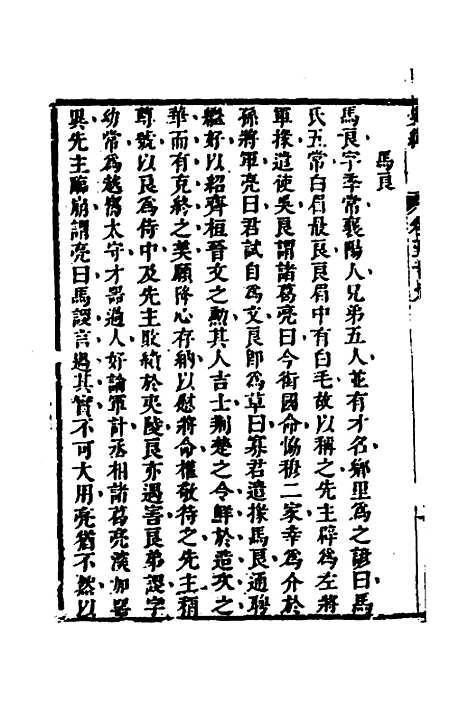 馬良
馬良字季常襄陽人兄弟五人並有才名鄉里爲之諺曰馬
氏五常白眉最良良眉中有白毛故以稱之先主辟爲左將
軍掾遣使吳良謂諸葛亮曰今銜國命恊穆二家幸爲介於
孫將軍亮曰君試自爲文良卽爲草曰寡君遣掾馬良通聘
繼好以紹齊桓晉文之勳其人吉士荆楚之令鮮於造次之
華而有克終之美願降心存納以慰將命權敬待之先主稱
尊號以良爲侍中及先主敗績於夷陵良亦遇害良弟謖字
幼常爲越嶲太守才器過人好論軍計丞相諸葛亮深加器
異先主臨崩謂亮曰馬謖言過其實不可大用亮猶不然以